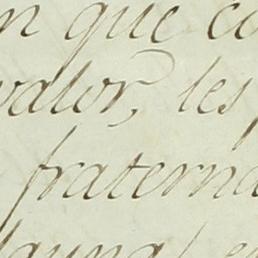 n que co
valor, les
fraterna